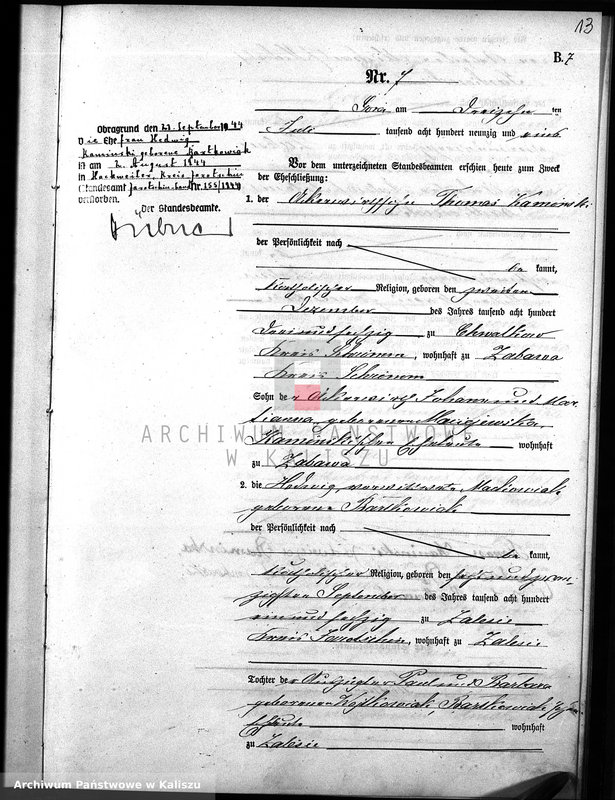 13
B. 7
Nr. 7
Góra am Dreizehn ten
Juli tausend acht hundert neunzig und eins
Vor dem unterzeichneten Standesbeamten erschien heute zum Zweck
der Eheschließung:
1. der Ackerwirthssohn Thomas Kaminski
der Persönlichkeit nach
be kannt,
katholischer Religion, geboren den zweiten
Dezember des Jahres tausend acht hundert
drei und sechzig zu Chwalkowo
Kreis Schrimm, wohnhaft zu Zabawa
Kreis Schrimm
Sohn de r Ackerwirth Johann und Mar
ianna geborenen Maciejewska,
Kaminskischen Eheleute wohnhaft
zu Zabawa
2. die Hedwig, verwittwete Mackowiak
geborene Bartkowiak
der Persönlichkeit nach
be kannt,
katholischer Religion, geboren den sechs und zwan-
zigsten September des Jahres tausend acht hundert
ein und sechzig zu Zalesie
Kreis Jarotschin, wohnhaft zu Zalesie
Tochter de r Auszügler Paul und Barbara
geborenen Bartkowiak'schen
Eheleute wohnhaft
zu Zalesie
Obragrund den 23. September 1944
Die Ehefrau Hedwig
Kaminski geborene Bartkowiak
ist am 2. August 1944
in Hackweiler, Kreis Jarotschin
(Standesamt Jarotschin-Land Nr. 155/1944)
verstorben.
Der Standesbeamte.
ARCHIWUM PAŃSTWOWE
W KALISZU
Archiwum Państwowe w Kaliszu